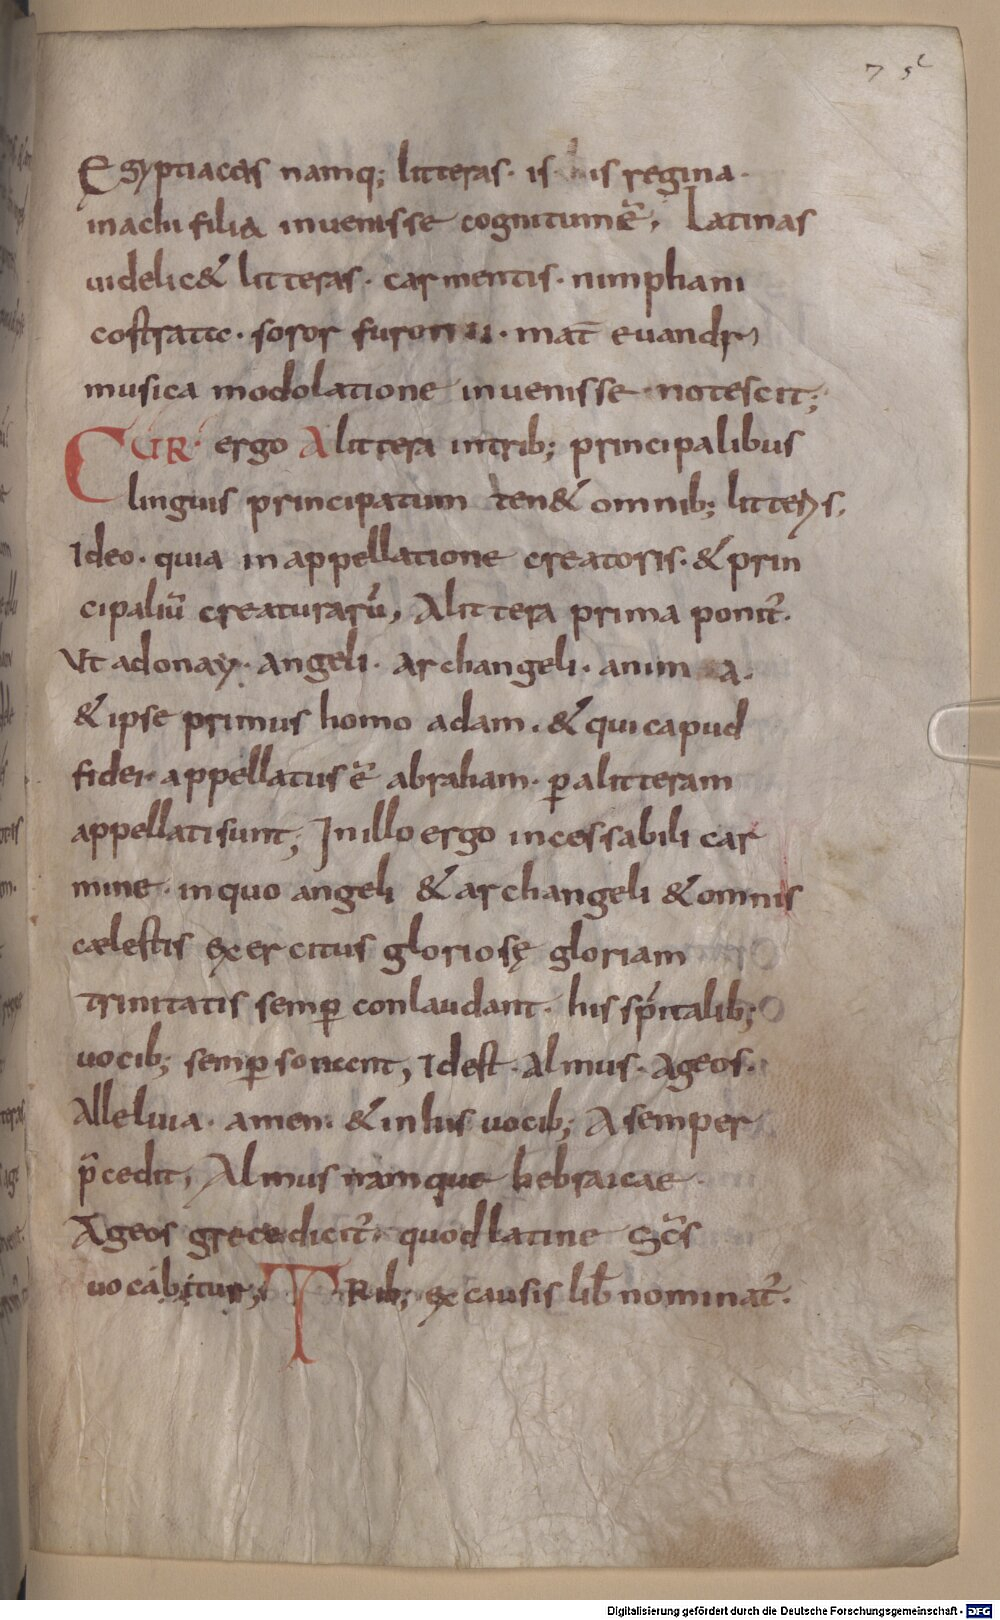 75
Egyptiacas namq; litteras· is his regina·
inachi filia inuenisse cognitum ē̃, Latinas
uidelic& litteras· carmentis· nimpham
costratie· soror furon u· mat̄ euandri
musica modolatione inuenisse notescit;
CUR· ergo A littera in trib; principalibus
linguis principatum ten& omnib; litteris,
Ideo· quia in appellatione creatoris· & prin
cipaliū creaturarū, A littera prima ponit᷑·
Vt adonay· angeli· archangeli· anima·
& ipse primus homo adam· & qui capud
fidei· appellatus ē̃ abraham· ꝑ a litteram
appellati sunt; In illo ergo incessabili car
mine· in quo angeli & archangeli & omnis
cælestis exercitus gloriosę gloriam
trinitatis semꝑ conlaudant· his spı̄talib;
uocib; semꝑ sonent, Idest· Almus· Ageos·
Alleluia· amen· & in his uocib; A semper
p̄cedit, Almus namque hebraicae·
Ageos grece dicit᷑· quod latine Sc̄s
uocabitur; TRib; ex causis lib̄ nominat᷑·
Digitalisierung gefördert durch die Deutsche Forschungsgemeinschaft - DFG